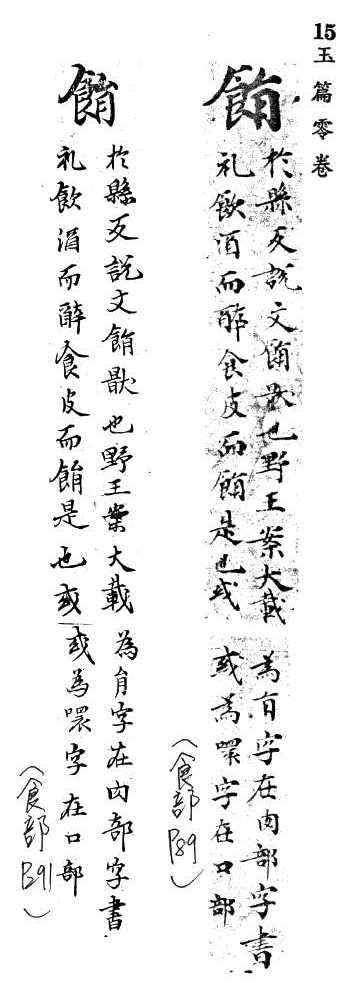 15 玉篇零卷
䬼
於縣反説文䬼猒也野王案大載
礼飲酒而醉食皮而䬼是也或
為肙字在肉部字書
或為噮字在口部
(食部 P89)
䬼
於縣反説文䬼猒也野王案大載
礼飲酒而醉食皮而䬼是也或
為肙字在肉部字書
或為噮字在口部
(食部 B91)